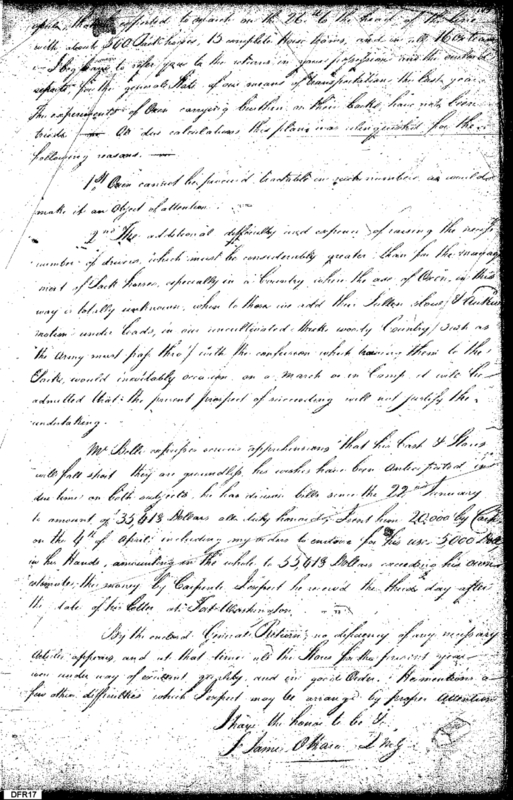 expected to march on the 26th to the head of the line
with about 500 Pack horses, 13 complete horse teams, and in all 16 Ox teams
I beg leave to refer you to the returns in your possession and the enclosed
reports for the general State of our means of transportation the last year
The experiments of Oxen carrying burthen on their backs have not been
tried. On due calculations this plan was relinquished for the
following reasons.
1st Oxen cannot be procured tractable in such numbers as would
make it an Object of attention.
2nd The additional difficulty and expence of raising the
number of drivers, which must be considerably greater than for the
ment of Pack horses, especially in a Country where the use of Oxen in this
way is totally unknown, when to these we add their Sullen slow &
motion under loads, in our uncultivated thick woody Country (such as
the Army must pass thro') with the confusion which training them to the
would inevitably occasion on a march or in Camp it will be
admitted that the present prospect of succeeding will not justify the
undertaking.
Mr Belli expresses some apprehensions that his Cash & Stores
will fall short they are groundless, his wishes have been anticipated in
due time on both subjects, he has drawn bills since the 22nd January
to amount of 35,413 Dollars all duly honored, I sent him 20,000 by
on the 4th of April including my orders to endorse for his use 5,000
in his Hands, amounting in the whole to 55,413 Dollars exceeding his own
estimate, the money by I expect he received the third day after
the date of his Letter at Fort Washington.
By the enclosed General Return, no deficiency of any necessary
Articles appears, and at that time all the Stores for the present year
were under way of excellent quality and in good Order. He mentions a
few other difficulties which I expect may be arranged by proper attention
I have the honor to be &c
James OHara Q M G
DFR17